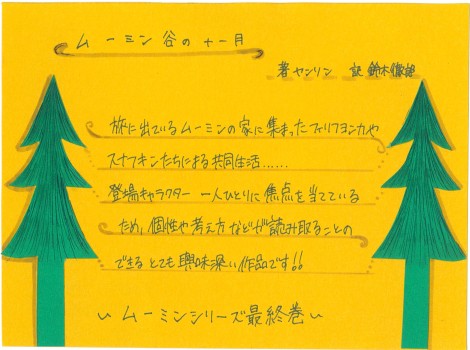 ムーミン谷の十一月
著ヤンソン 訳 鈴木徹郎
旅に出ているムーミンの家に集まったフィリフヨンカや
スナフキンたちによる共同生活......
登場キャラクター一人ひとりに焦点を当てている
ため、個性や考え方などが読み取ることの
できるとても興味深い作品です!!
~ムーミンシリーズ最終巻~